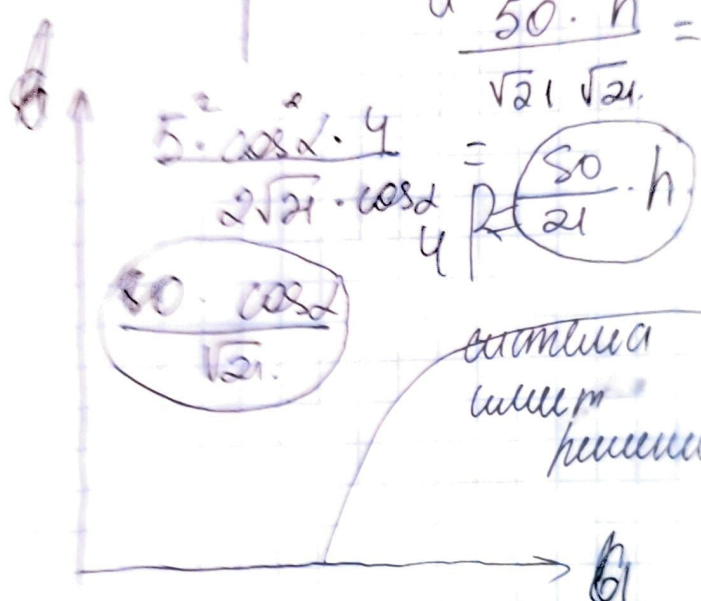 50 · h / √21 √21. =
5² · cos²α · 4 / 2√21 · cosα =
50 / 21 · h
4
50 · cosα / √21.
система
имеет
решени